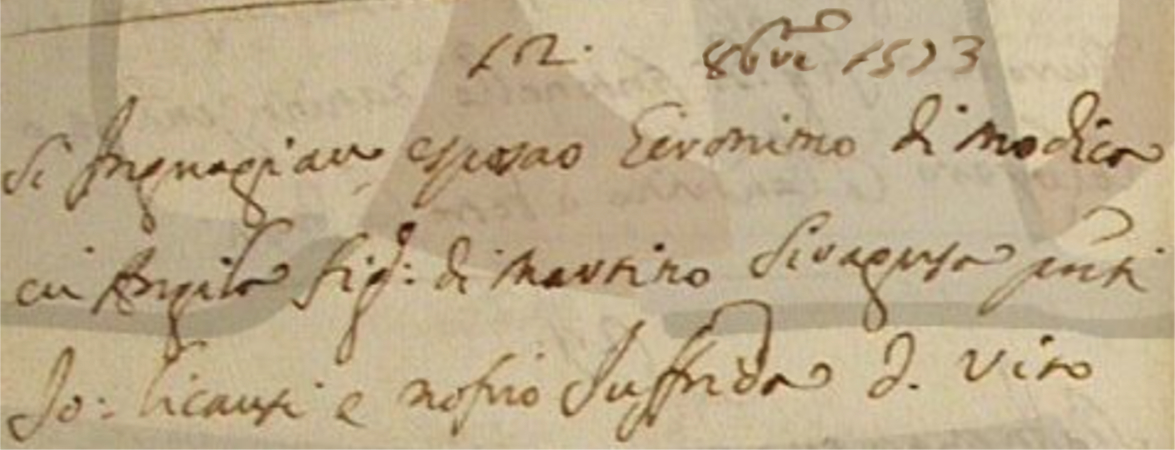 12. 8bre 1573
Si Inguagiau et sposao Geronimo di Modica
cu Angila fig: di Martino Siragusa pnti
Jo: Licausi e nofrio Juffrida d. Vito